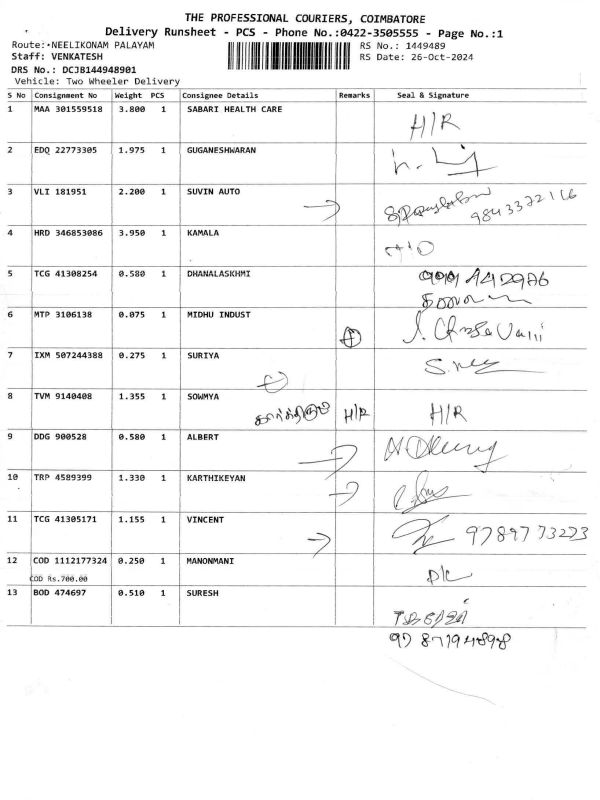 THE PROFESSIONAL COURIERS, COIMBATORE
Delivery Runsheet - PCS - Phone No.:0422-3505555 - Page No.:1
Route:-NEELIKONAM PALAYAM RS No.: 1449489
Staff: VENKATESH RS Date: 26-Oct-2024
DRS No.: DCJB144948901
Vehicle: Two Wheeler Delivery
S No Consignment No Weight PCS Consignee Details Remarks Seal & Signature
1 MAA 301559518 3.800 1 SABARI HEALTH CARE H/R
2 EDQ 22773305 1.975 1 GUGANESHWARAN
3 VLI 181951 2.200 1 SUVIN AUTO
9843372116
4 HRD 346853086 3.950 1 KAMALA
5 TCG 41308254 0.580 1 DHANALASKHMI
6 MTP 3106138 0.075 1 MIDHU INDUST
7 IXM 507244388 0.275 1 SURIYA
8 TVM 9140408 1.355 1 SOWMYA H/R H/R
9 DDG 900528 0.580 1 ALBERT
10 TRP 4589399 1.330 1 KARTHIKEYAN
11 TCG 41305171 1.155 1 VINCENT 9789773273
12 COD 1112177324 0.250 1 MANONMANI D/C
COD Rs.700.00
13 BOD 474697 0.510 1 SURESH